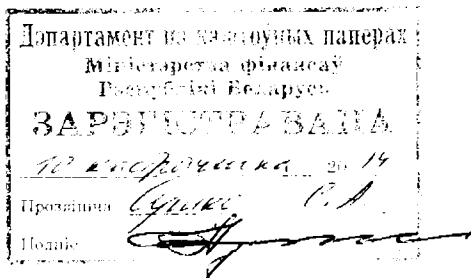 Дэпартамент па каштоўных паперах
Міністэрства фінансаў
Рэспублікі Беларусь
ЗАРЭГІСТРАВАНА
10 20 14
Прозвішча С.А
Подпіс